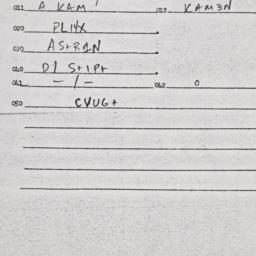 011 A KAM 012 KAM3N
020 PL14X
030 AS+R1N
040 D1 S+1P+
041 - / - 042 0
050 CVUG+